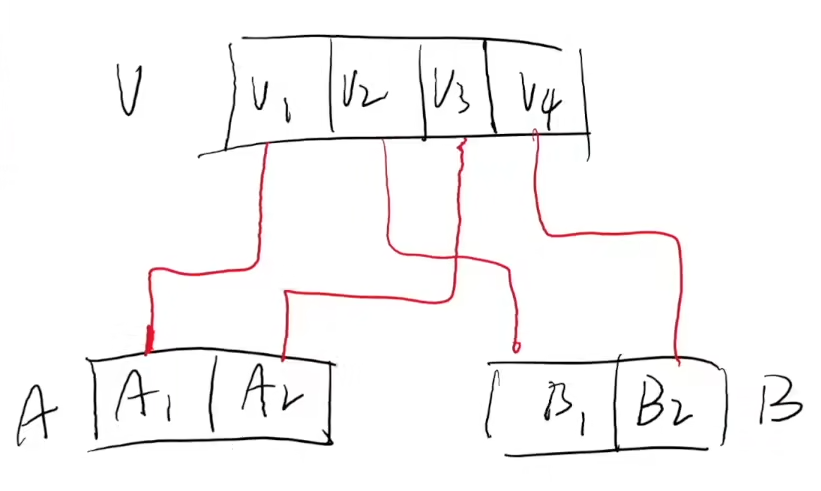 V V₁ V₂ V₃ V₄
A A₁ A₂ B₁ B₂ B